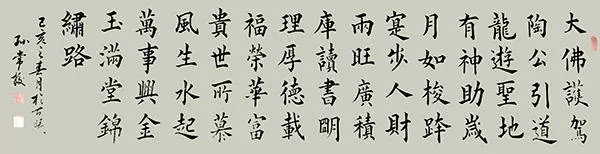 大佛護駕
陶公引道
龍遊聖地
有神助歲
月如梭跨
蹇步人財
兩旺廣積
庫讀書明
理厚德載
福榮華富
貴世所慕
風生水起
萬事興金
玉滿堂錦
繡路
己亥之春月於古吳